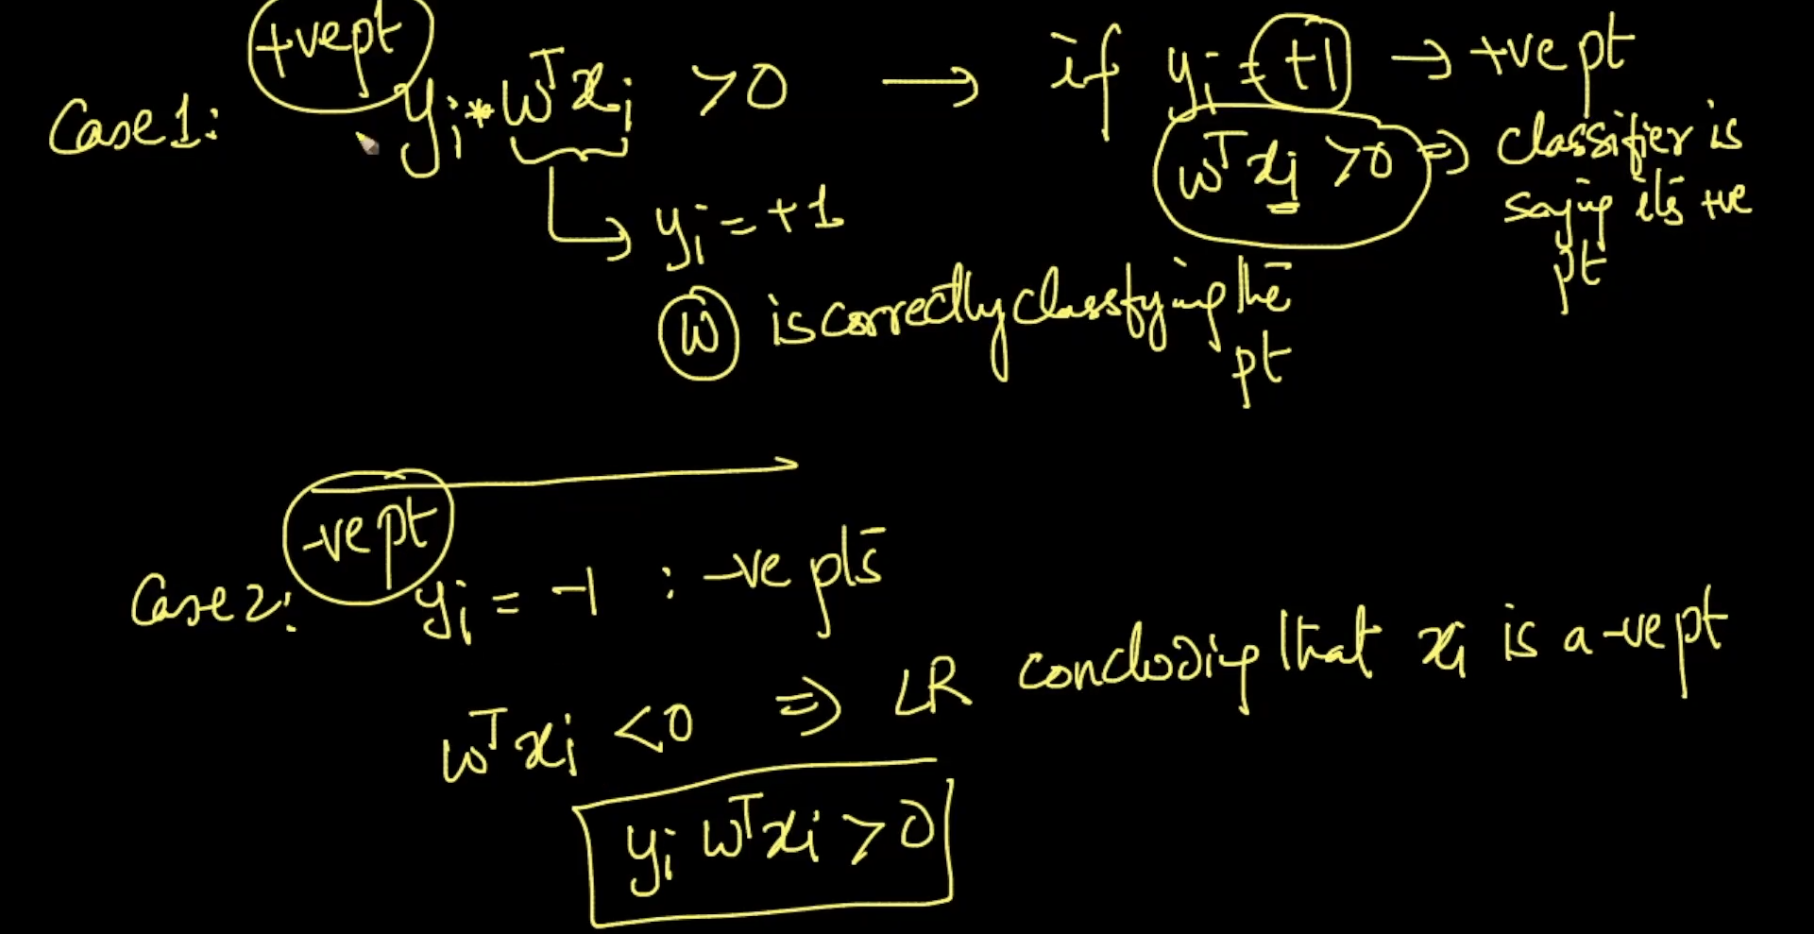 +ve pt
Case 1: yi * wᵀxi > 0 → if yi = +1 → +ve pt
wᵀxi > 0 ⇒ classifier is
saying it's +ve
pt
↳ yi = +1
w is correctly classifying the
pt
-ve pt
Case 2: yi = -1 : -ve pts
wᵀxi < 0 ⇒ LR concluding that xi is a -ve pt
yi wᵀxi > 0